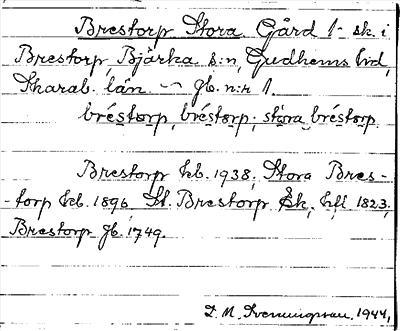 Brestorp Stora Gård 1 sk. i
Brestorp, Bjärka s:n, Gudhems hd,
Skarab. län — gb. n:r 1.
bréstorp, bréstorp; stora bréstorp
Brestorp kb. 1938; Stora Bres-
-torp kb. 1896, St. Brestorp Ek; hfl 1823;
Brestorp gb. 1749.
D. M. Svenningsson. 1944,